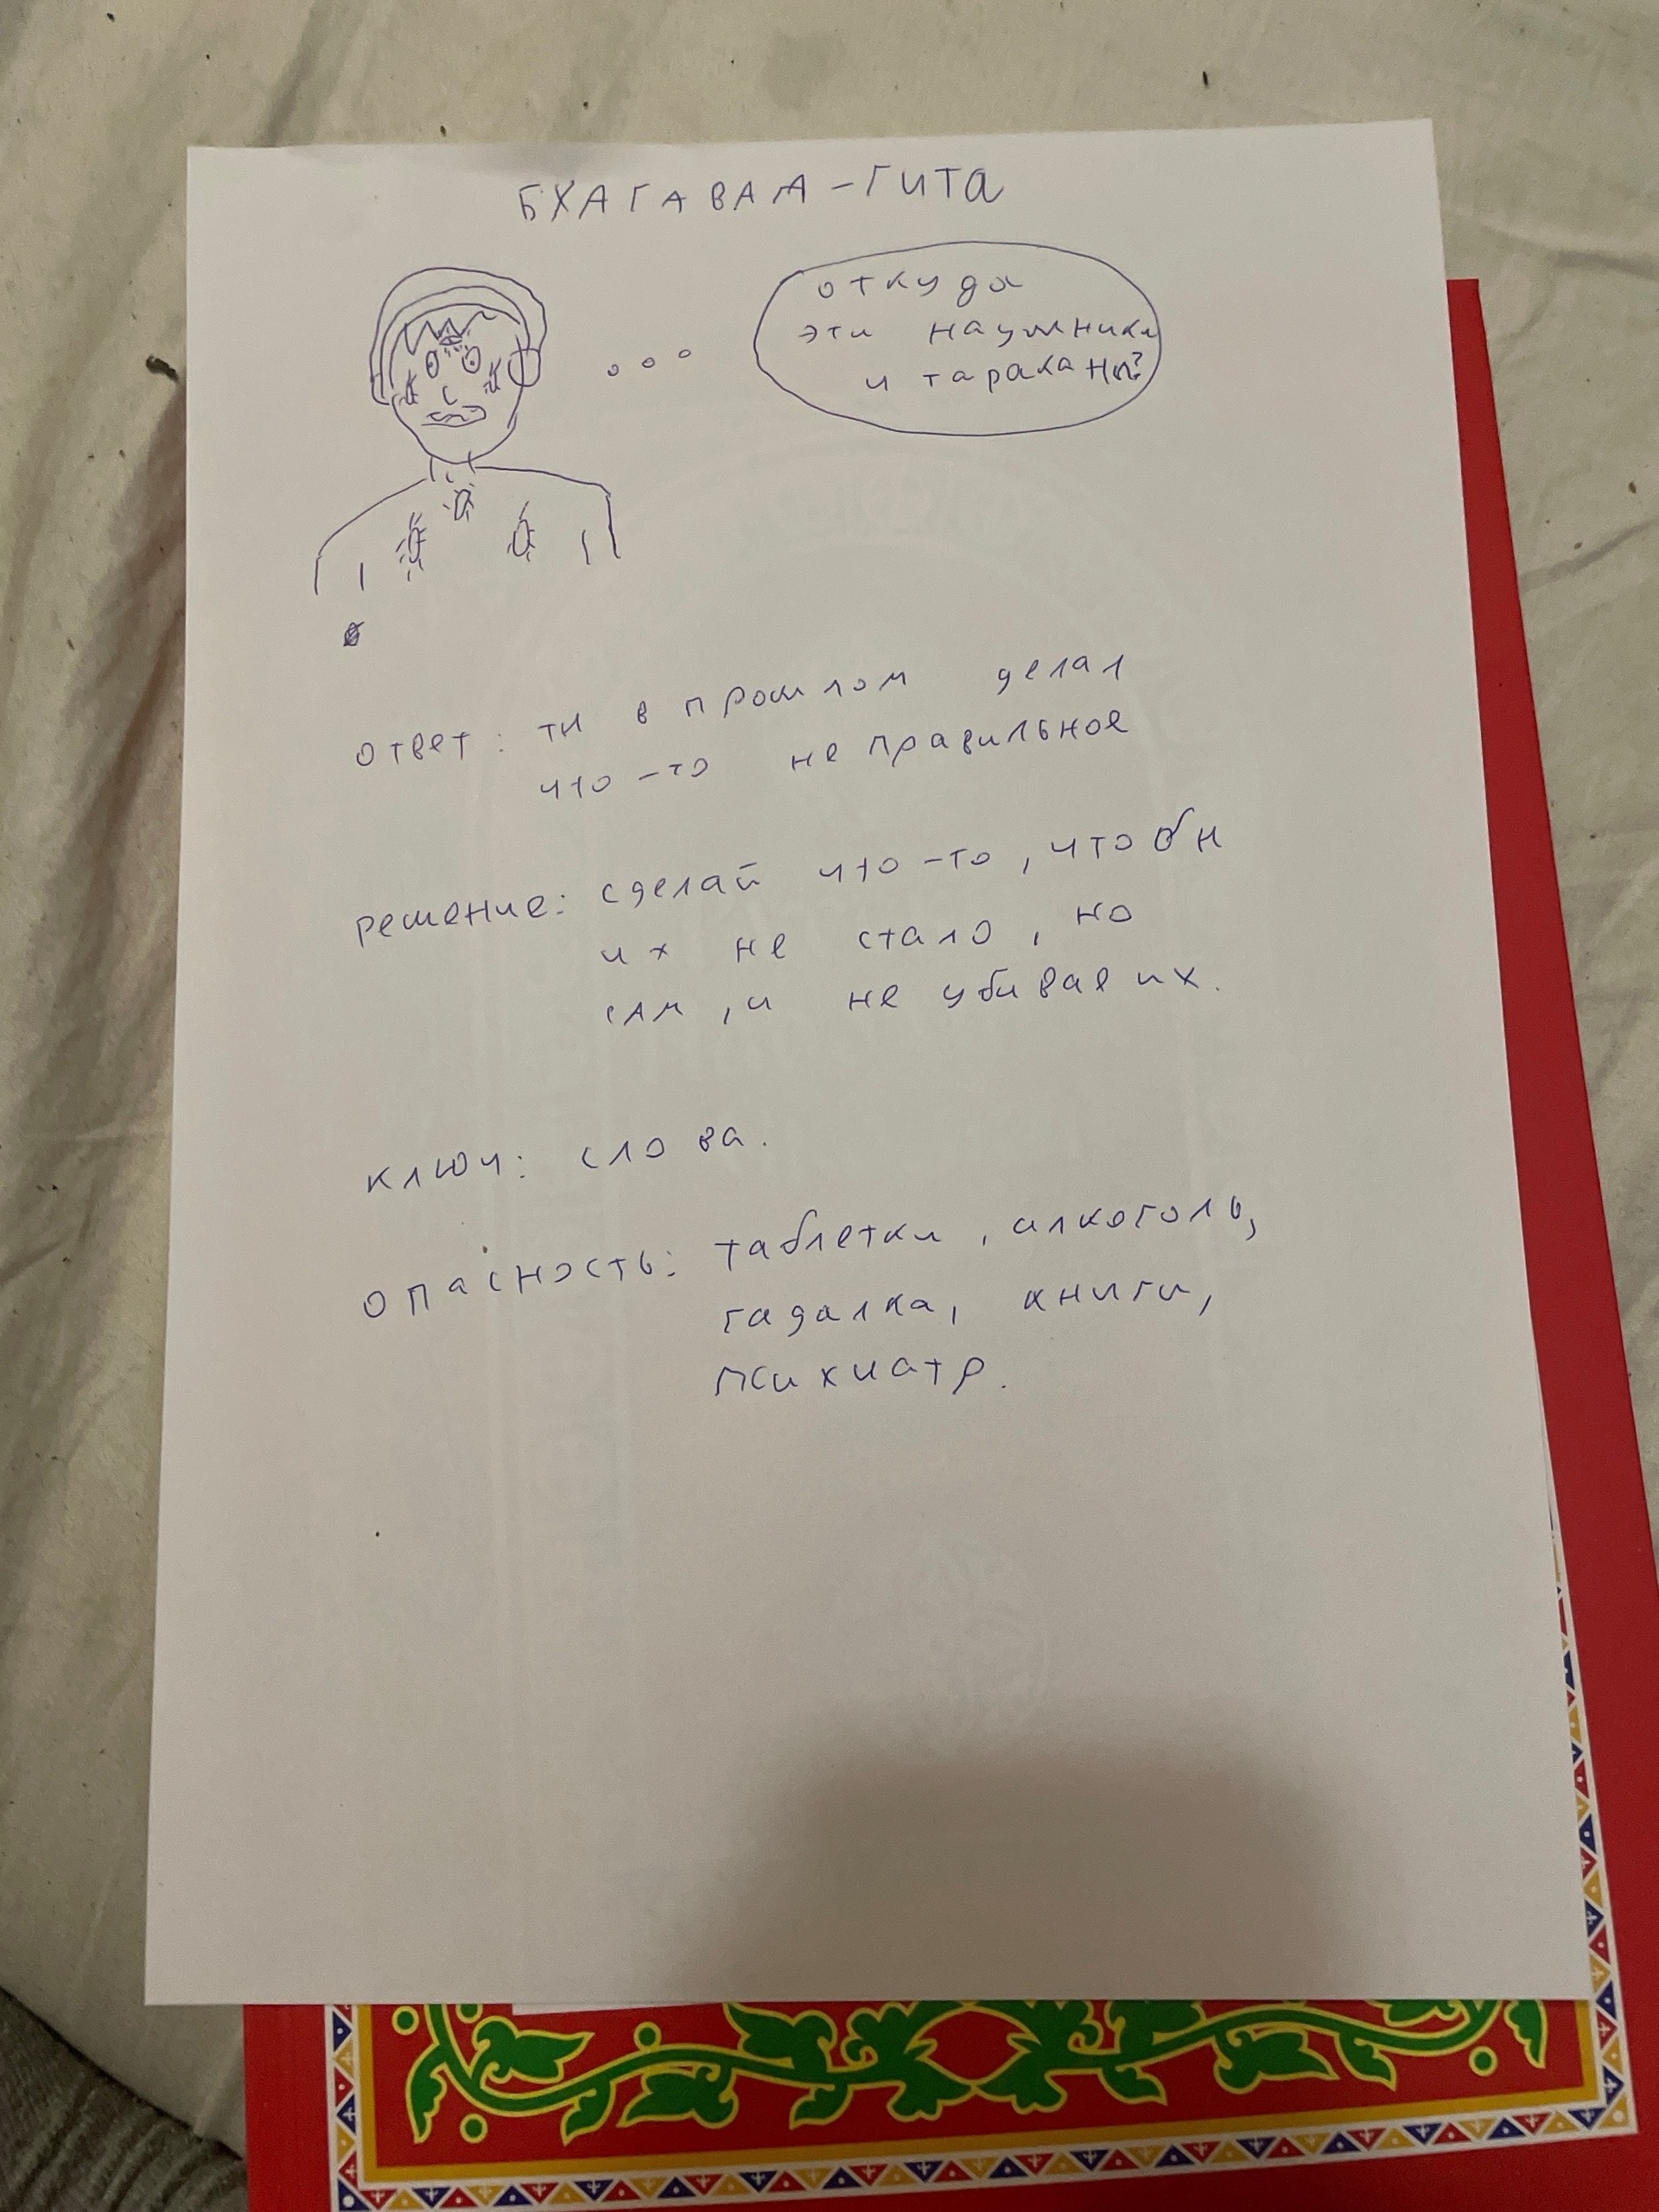 БХАГАВАД-ГИТА
откуда
эти наушники
и тараканы?
ответ: ты в прошлом делал
что-то неправильное
решение: сделай что-то, чтобы
их не стало, но
сам, и не убивае их.
ключ: слова.
опасность: таблетки, алкоголь,
гадалка, книги,
психиатр.